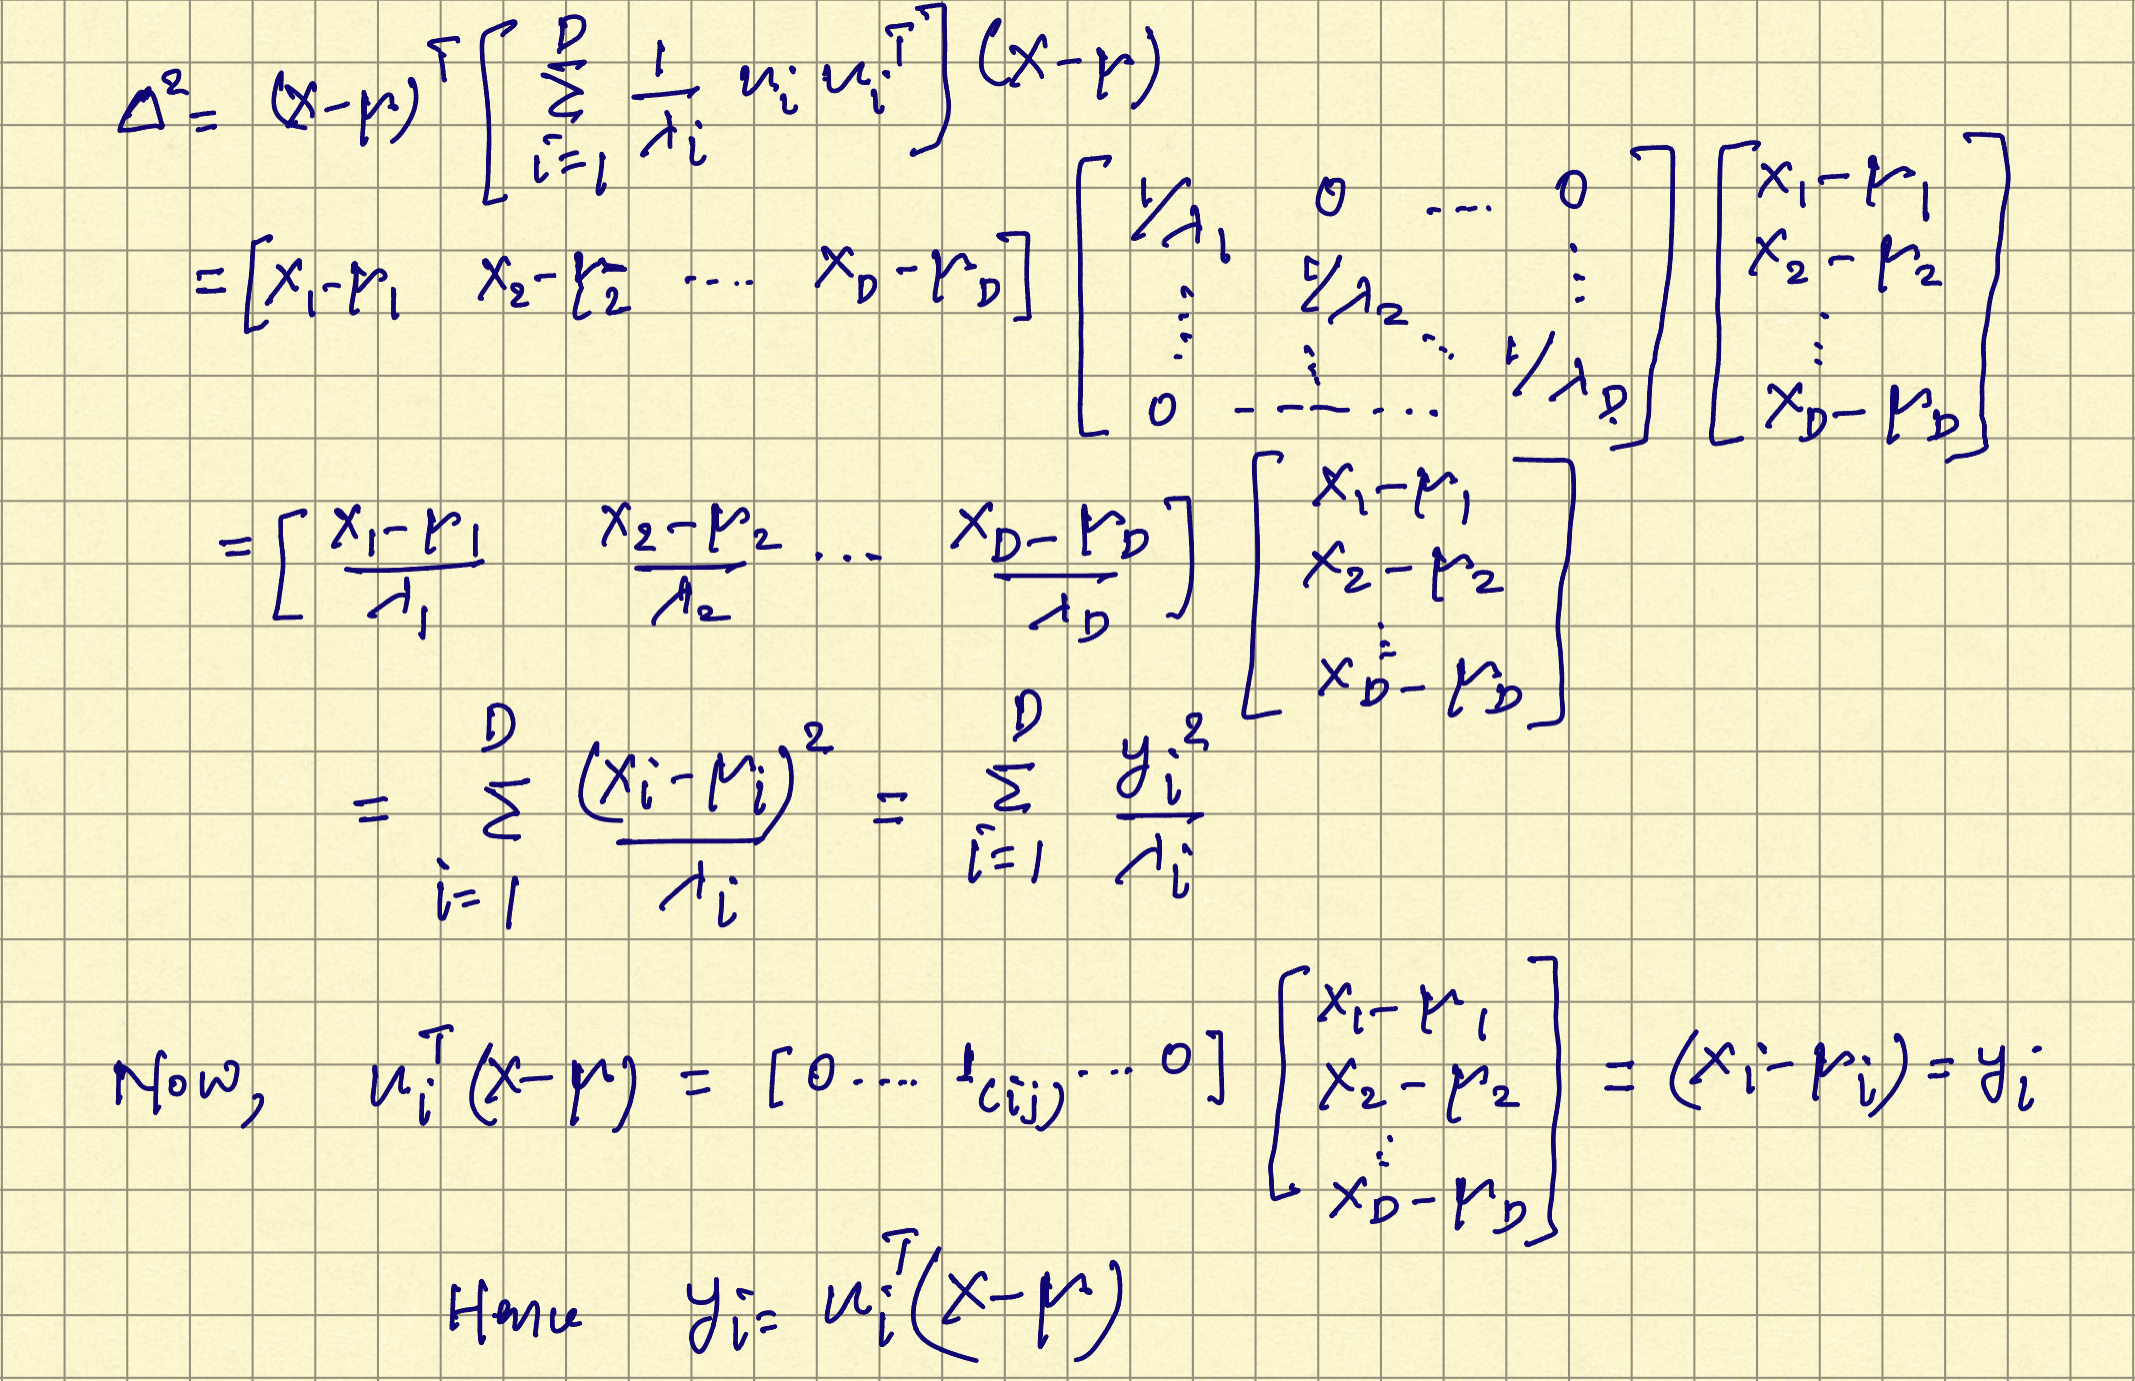 Δ² = (x-μ)ᵀ [ Σ_{i=1}^{D} 1/λᵢ uᵢ uᵢᵀ ] (x-μ)
= [ x₁-μ₁  x₂-μ₂  ....  x_D-μ_D ] [ 1/λ₁  0  ....  0 ; ⋮  1/λ₂  ⋱  ⋮ ; 0  - - - ...  1/λ_D ] [ x₁-μ₁ ; x₂-μ₂ ; ⋮ ; x_D-μ_D ]
= [ (x₁-μ₁)/λ₁  (x₂-μ₂)/λ₂  ...  (x_D-μ_D)/λ_D ] [ x₁-μ₁ ; x₂-μ₂ ; ⋮ ; x_D-μ_D ]
= Σ_{i=1}^{D} (xᵢ-μᵢ)²/λᵢ = Σ_{i=1}^{D} yᵢ²/λᵢ
Now, uᵢᵀ(x-μ) = [ 0 .... 1_(ij) ... 0 ] [ x₁-μ₁ ; x₂-μ₂ ; ⋮ ; x_D-μ_D ] = (xᵢ-μᵢ) = yᵢ
Hence yᵢ = uᵢᵀ(x-μ)